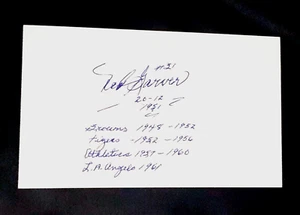 #21
Ned Garver
20-12
1951
Browns 1948-1952
Tigers - 1952-1956
Athletics 1957-1960
L.A. Angels 1961